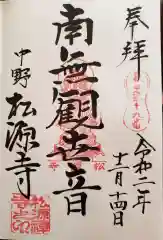 奉拝
令和二年
十一月十四日
南無観世音
中野
松源寺